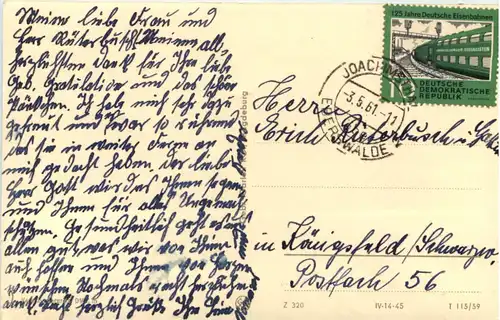 Meine liebe Frau und
Herr Rüterbusch! Meinen all-
herzlichsten Dank für Ihre liebe
Geb. Gratulation und das schöne
Päckchen. Ich habe mich sehr dazu
gefreut und zwar so rührend
das sie in weiter Ferne an
mich gedacht haben. Der liebe
Herr Gott wird das Ihnen segnen
und Ihnen für alles
schützen. Gesundheitlich geht es uns
allen gut, was wir von Ihnen
auch hoffen und Ihnen von Herzen
wünschen. Nochmals recht herzlichen
Dank. Recht herzlich Grüßt Ihre
125 Jahre Deutsche Eisenbahnen
DEUTSCHE
DEMOKRATISCHE
REPUBLIK
10
JOACHIMSTHAL
-3.5.61.-11
EBERSWALDE
Magdeburg
Herrn
Erich Rüterbusch u.
in Königsfeld/Schwarzw.
Postfach 56
Z 320 IV-14-45 T 115/59